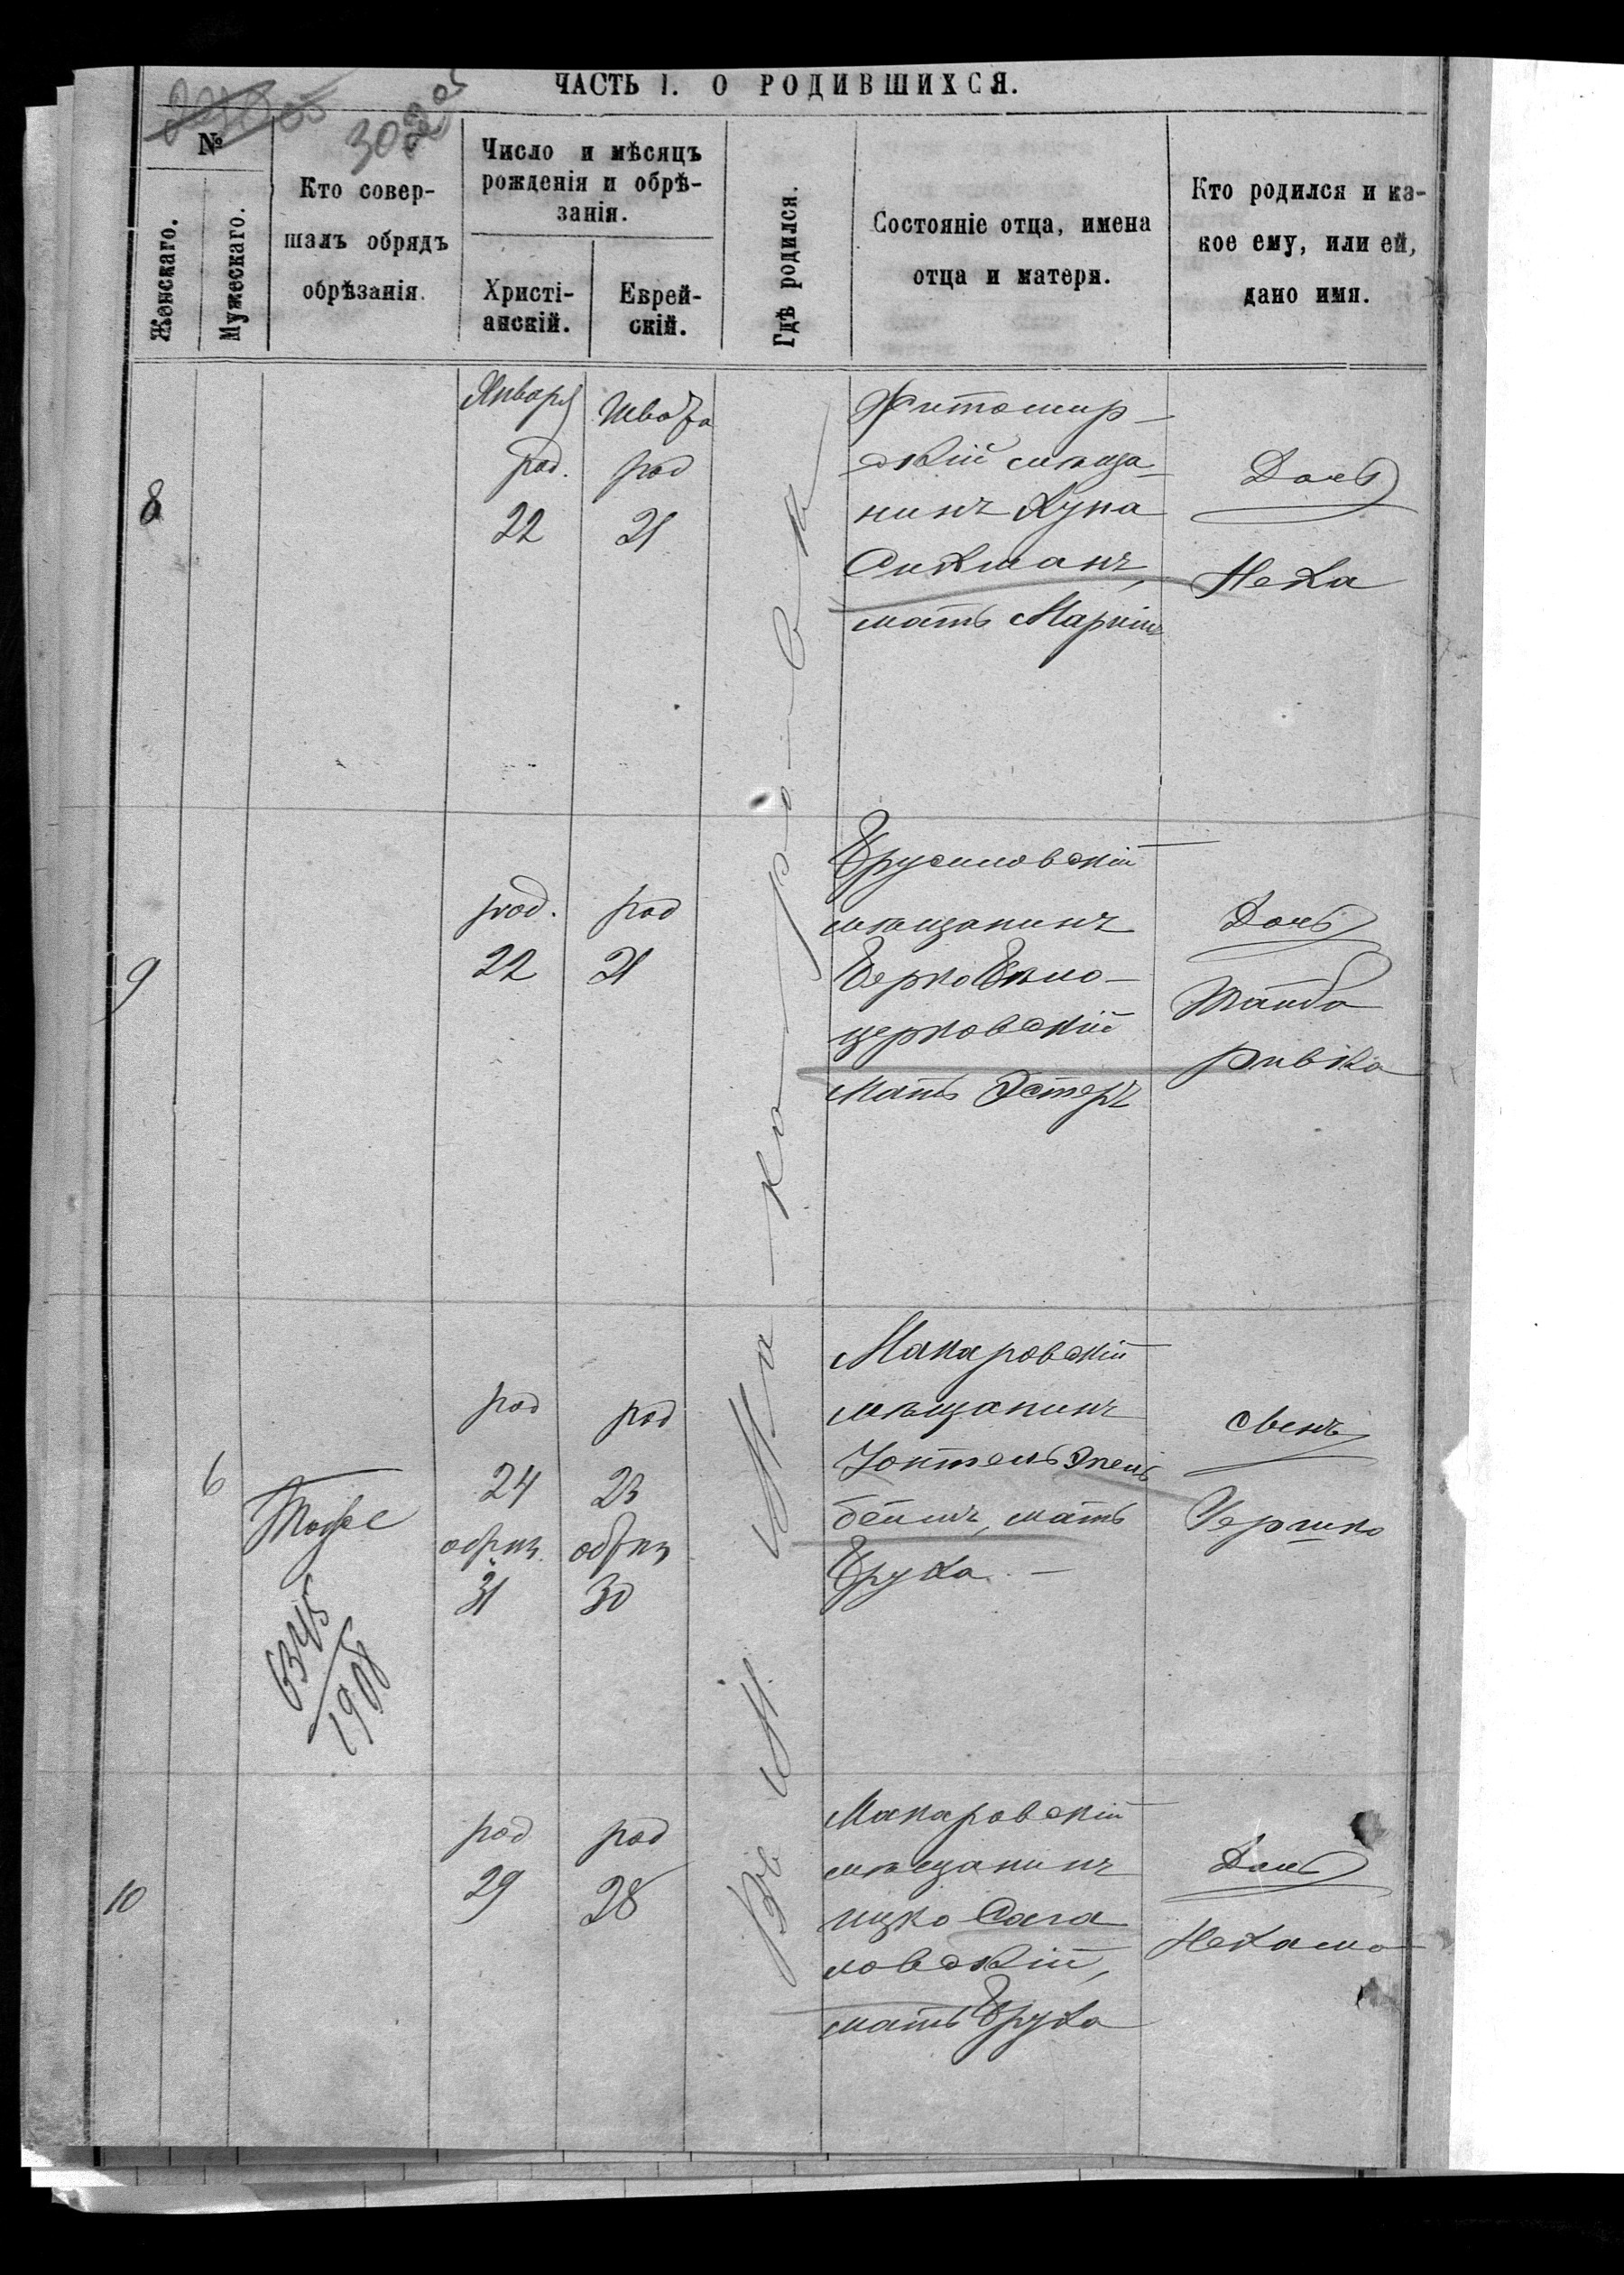 ЧАСТЬ I. О РОДИВШИХСЯ.
№
Женскаго.
Мужескаго.
Кто совер-
шалъ обрядъ
обрѣзанія.
Число и мѣсяцъ
рожденія и обрѣ-
занія.
Христі-
анскій.
Еврей-
скій.
Гдѣ родился.
Состояніе отца, имена
отца и матери.
Кто родился и ка-
кое ему, или ей,
дано имя.
8
Января
род.
22
Швата
род
21
Житомир-
скій мѣща-
нинъ Хуна
Сихманъ,
мать Маріимъ
Дочь
Неха
9
род.
22
род
21
Брусиловскій
мѣщанинъ
Берко Бѣло-
церковскій
мать Эстеръ
Дочь
Тауба
Ривка
6
6345
1908
род
24
обрѣз.
31
род
23
обрѣз
30
Макаровскій
мѣщанинъ
беймъ, мать
Бруха. -
Сынъ
Гершко
10
род
29
род
28
Макаровскій
мѣщанинъ
Ицко Сага
ловскій,
мать Бруха
Дочь
Нехама
Въ М. Ма-ка-ро-вѣ